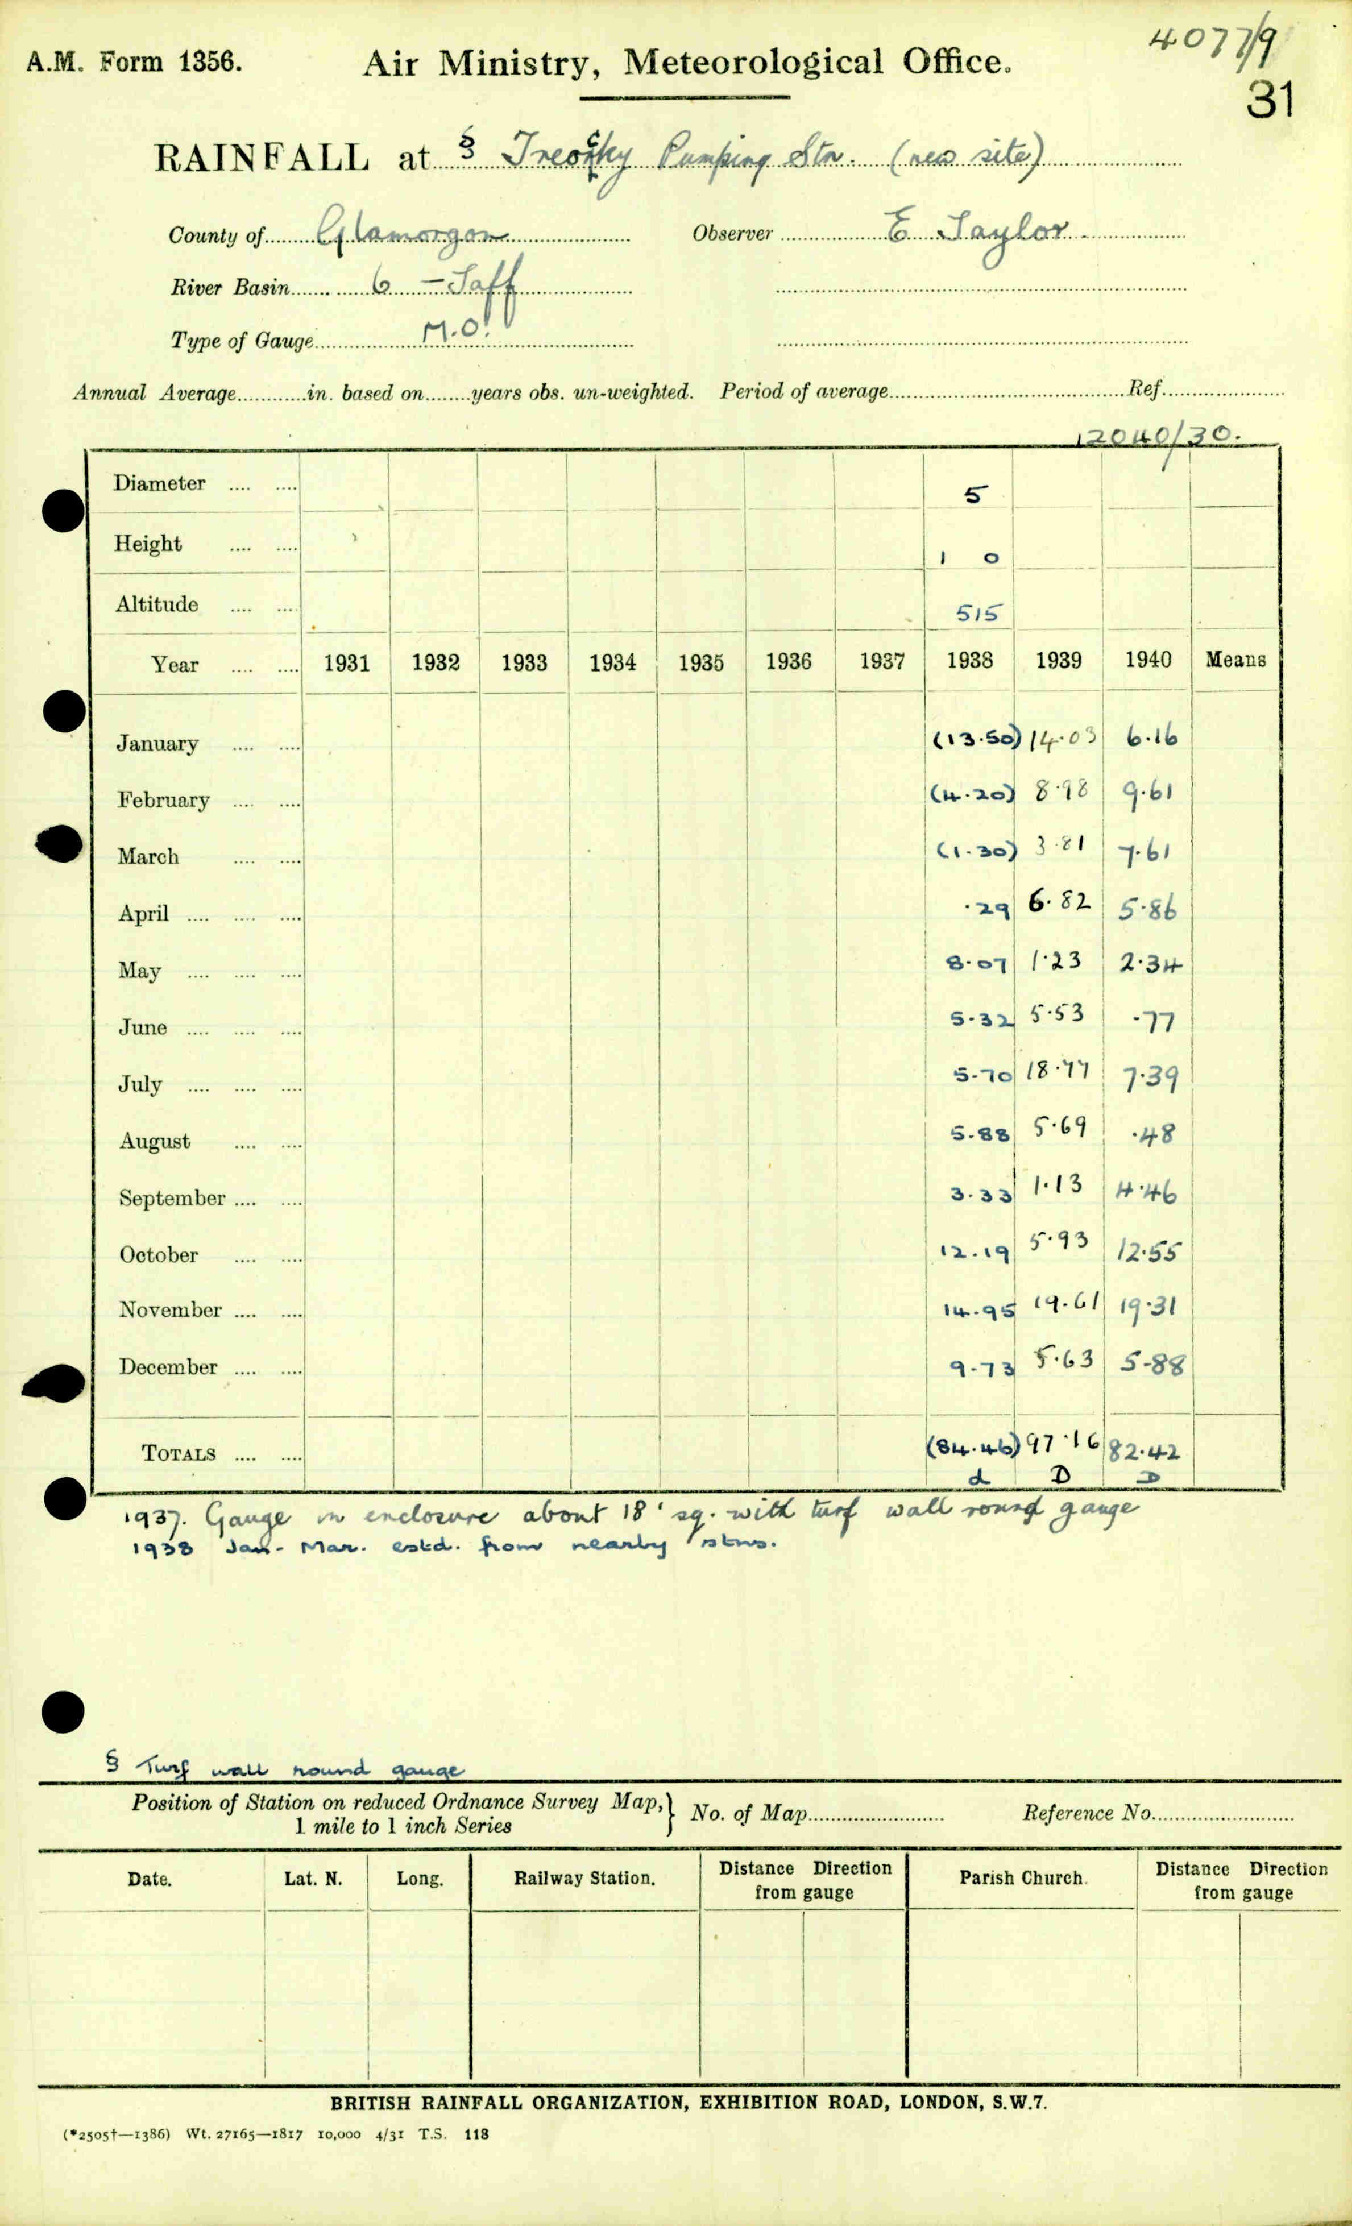 4077/9
A.M. Form 1356.
Air Ministry, Meteorological Office.
31
RAINFALL at § Treorchy Pumping Stn. (new site)
County of Glamorgan Observer E Taylor
River Basin 6 – Taff
Type of Gauge M.O.
Annual Average in. based on years obs. un-weighted. Period of average Ref.
12040/30.
Diameter 5
Height 1 0
Altitude 515
Year 1931 1932 1933 1934 1935 1936 1937 1938 1939 1940 Means
January (13.50) 14.03 6.16
February (4.20) 8.98 9.61
March (1.30) 3.81 7.61
April .29 6.82 5.86
May 8.07 1.23 2.34
June 5.32 5.53 .77
July 5.70 18.77 7.39
August 5.88 5.69 .48
September 3.33 1.13 4.46
October 12.19 5.93 12.55
November 14.95 19.61 19.31
December 9.73 5.63 5.88
TOTALS (84.46) 97.16 82.42
d D D
1937. Gauge in enclosure about 18' sq. with turf wall round gauge
1938 Jan- Mar. estd. from nearby stns.
§ Turf wall round gauge
Position of Station on reduced Ordnance Survey Map, 1 mile to 1 inch Series } No. of Map Reference No.
Date. Lat. N. Long. Railway Station. Distance Direction from gauge Parish Church. Distance Direction from gauge
BRITISH RAINFALL ORGANIZATION, EXHIBITION ROAD, LONDON, S.W.7.
(*2505†—1386) Wt. 27165—1817 10,000 4/31 T.S. 118